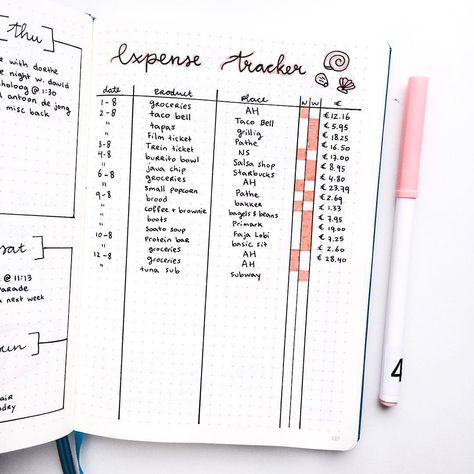 thu
e with dorthe
e night w. dawid
holoog @ 1:30
d antoon de jong
misc back
sat
@ 11:13
arade
n next week
un
air
ndry
Expense tracker
date product place N W €
1-8 groceries AH € 12.16
2-8 taco bell Taco Bell € 5.95
" tapas grillig € 18.25
" Film ticket Pathe € 16.50
3-8 Trein ticket NS € 17.00
4-8 burrito bowl Salsa shop € 8.95
" java chip Starbucks € 4.80
6-8 groceries AH € 23.79
" small popcorn Pathe € 2.69
9-8 brood bakker € 1.33
" coffee + brownie bagels & beans € 7.95
" boots Primark € 19.00
" Soato soup Faja Lobi € 7.25
10-8 Protein bar basic fit € 2.60
" groceries AH € 28.40
12-8 groceries AH
" tuna sub subway
127
4